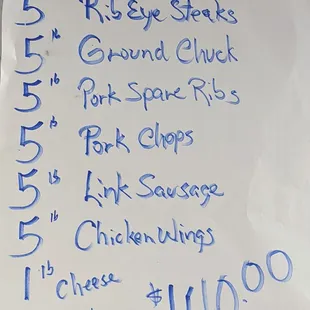 5 Rib Eye Steaks
5 lb Ground Chuck
5 lb Pork Spare Ribs
5 lb Pork Chops
5 lb Link Sausage
5 lb Chicken Wings
1 lb Cheese
$110.00